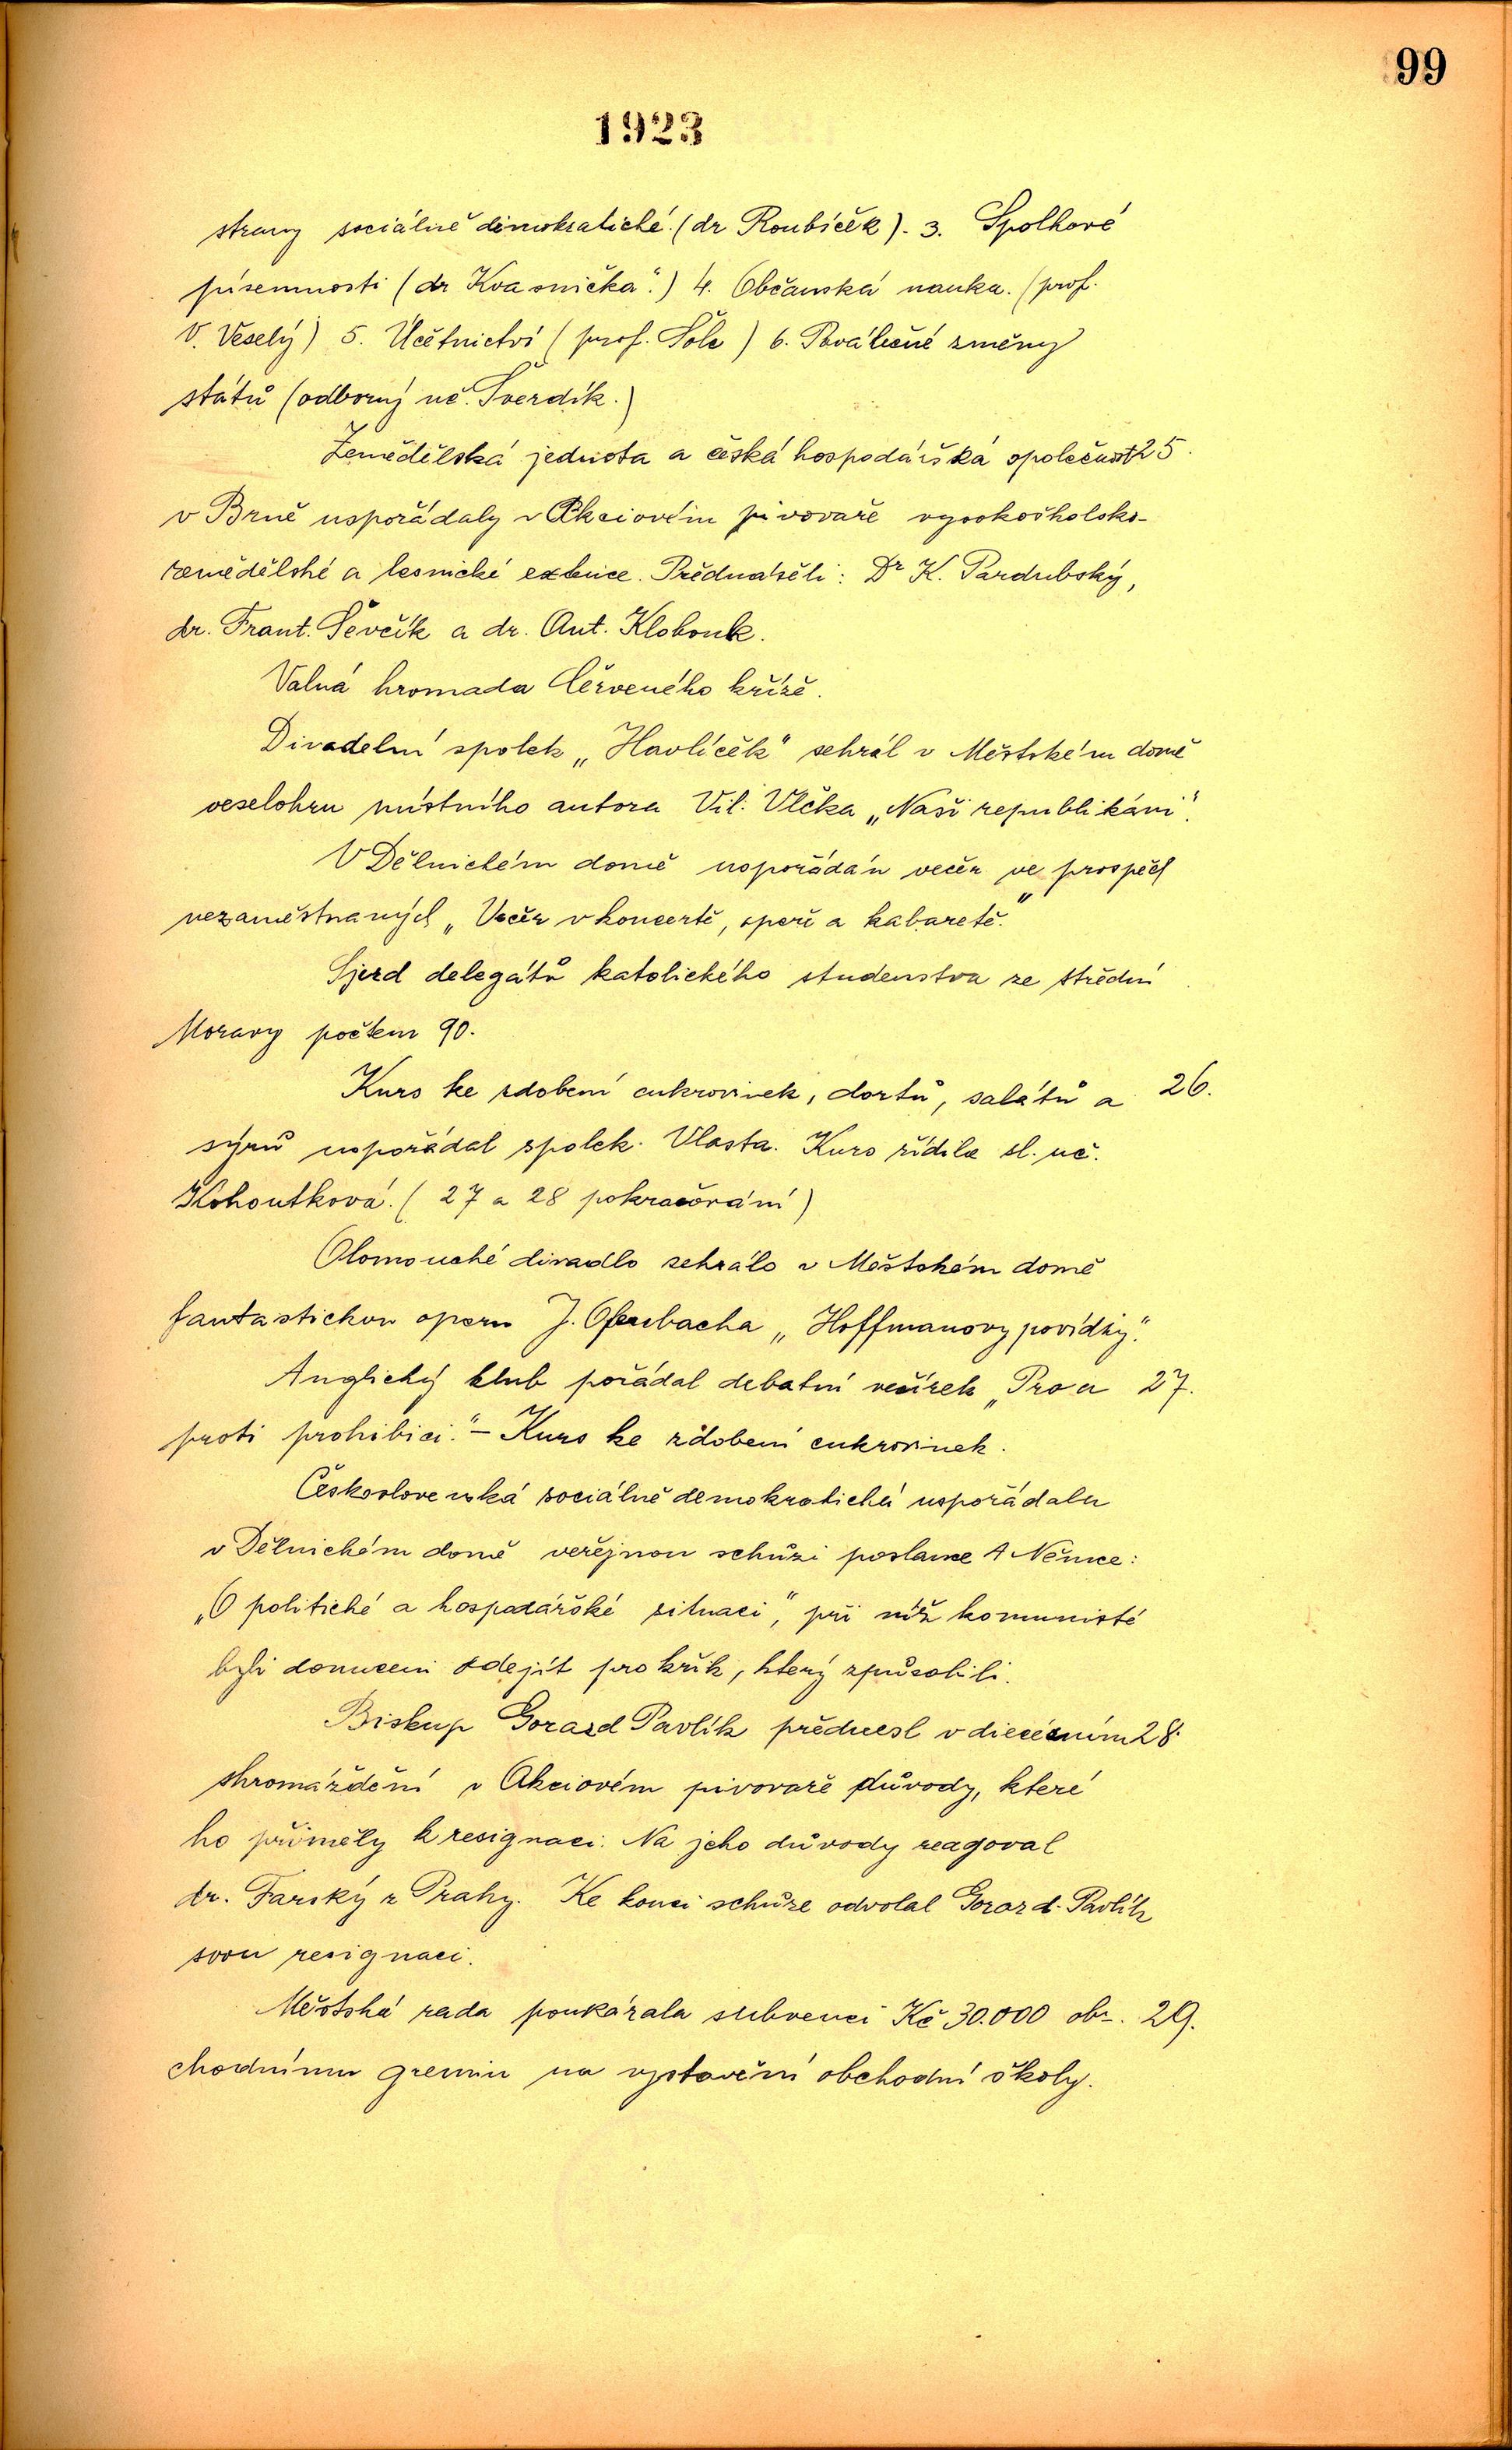 99
1923
strany sociálně demokratické. (dr Roubíček). 3. Spolkové
písemnosti (dr Kvasnička.) 4. Občanská nauka. (prof.
V. Veselý) 5. Účetnictví (prof. Šolc) 6. Poválečné změny
států (odborný uč. Šverdík.)
Zemědělská jednota a česká hospodářská společnost 25.
v Brně uspořádaly v Akciovém pivovaře vysokoškolsko-
zemědělské a lesnické extense. Přednášeli: Dr K. Pardubský,
dr. Frant. Ševčík a dr. Ant. Klobouk.
Valná hromada Červeného kříže.
Divadelní spolek „Havlíček" sehrál v Městském domě
veselohru místního autora Vil. Vlčka „Naši republikáni".
V Dělnickém domě uspořádán večer ve prospěch
nezaměstnaných „Večer v koncertě, opeře a kabaretě."
Sjezd delegátů katolického studenstva ze střední
Moravy počtem 90.
Kurs ke zdobení cukrovinek, dortů, salátů a 26.
sýrů uspořádal spolek Vlasta. Kurs řídila sl. uč.
Kohoutková. (27 a 28 pokračování)
Olomoucké divadlo sehrálo v Městském domě
fantastickou operu J. Ofenbacha „Hoffmanovy povídky".
Anglický klub pořádal debatní večírek „Pro a 27.
proti prohibici." – Kurs ke zdobení cukrovinek.
Českoslovenká sociálně demokratická uspořádala
v Dělnickém domě veřejnou schůzi poslance A Němce:
„O politické a hospodářské situaci", při níž komunisté
byli donuceni odejít pro křik, který způsobili.
Biskup Gorazd Pavlík přednesl v diecésním 28.
shromáždění v Akciovém pivovaře důvody, které
ho přiměly k resignaci. Na jeho důvody reagoval
dr. Farský z Prahy. Ke konci schůze odvolal Gorazd Pavlík
svou resignaci.
Městská rada poukázala subvenci Kč 30.000 ob-. 29.
chodnímu gremiu na vystavění obchodní školy.